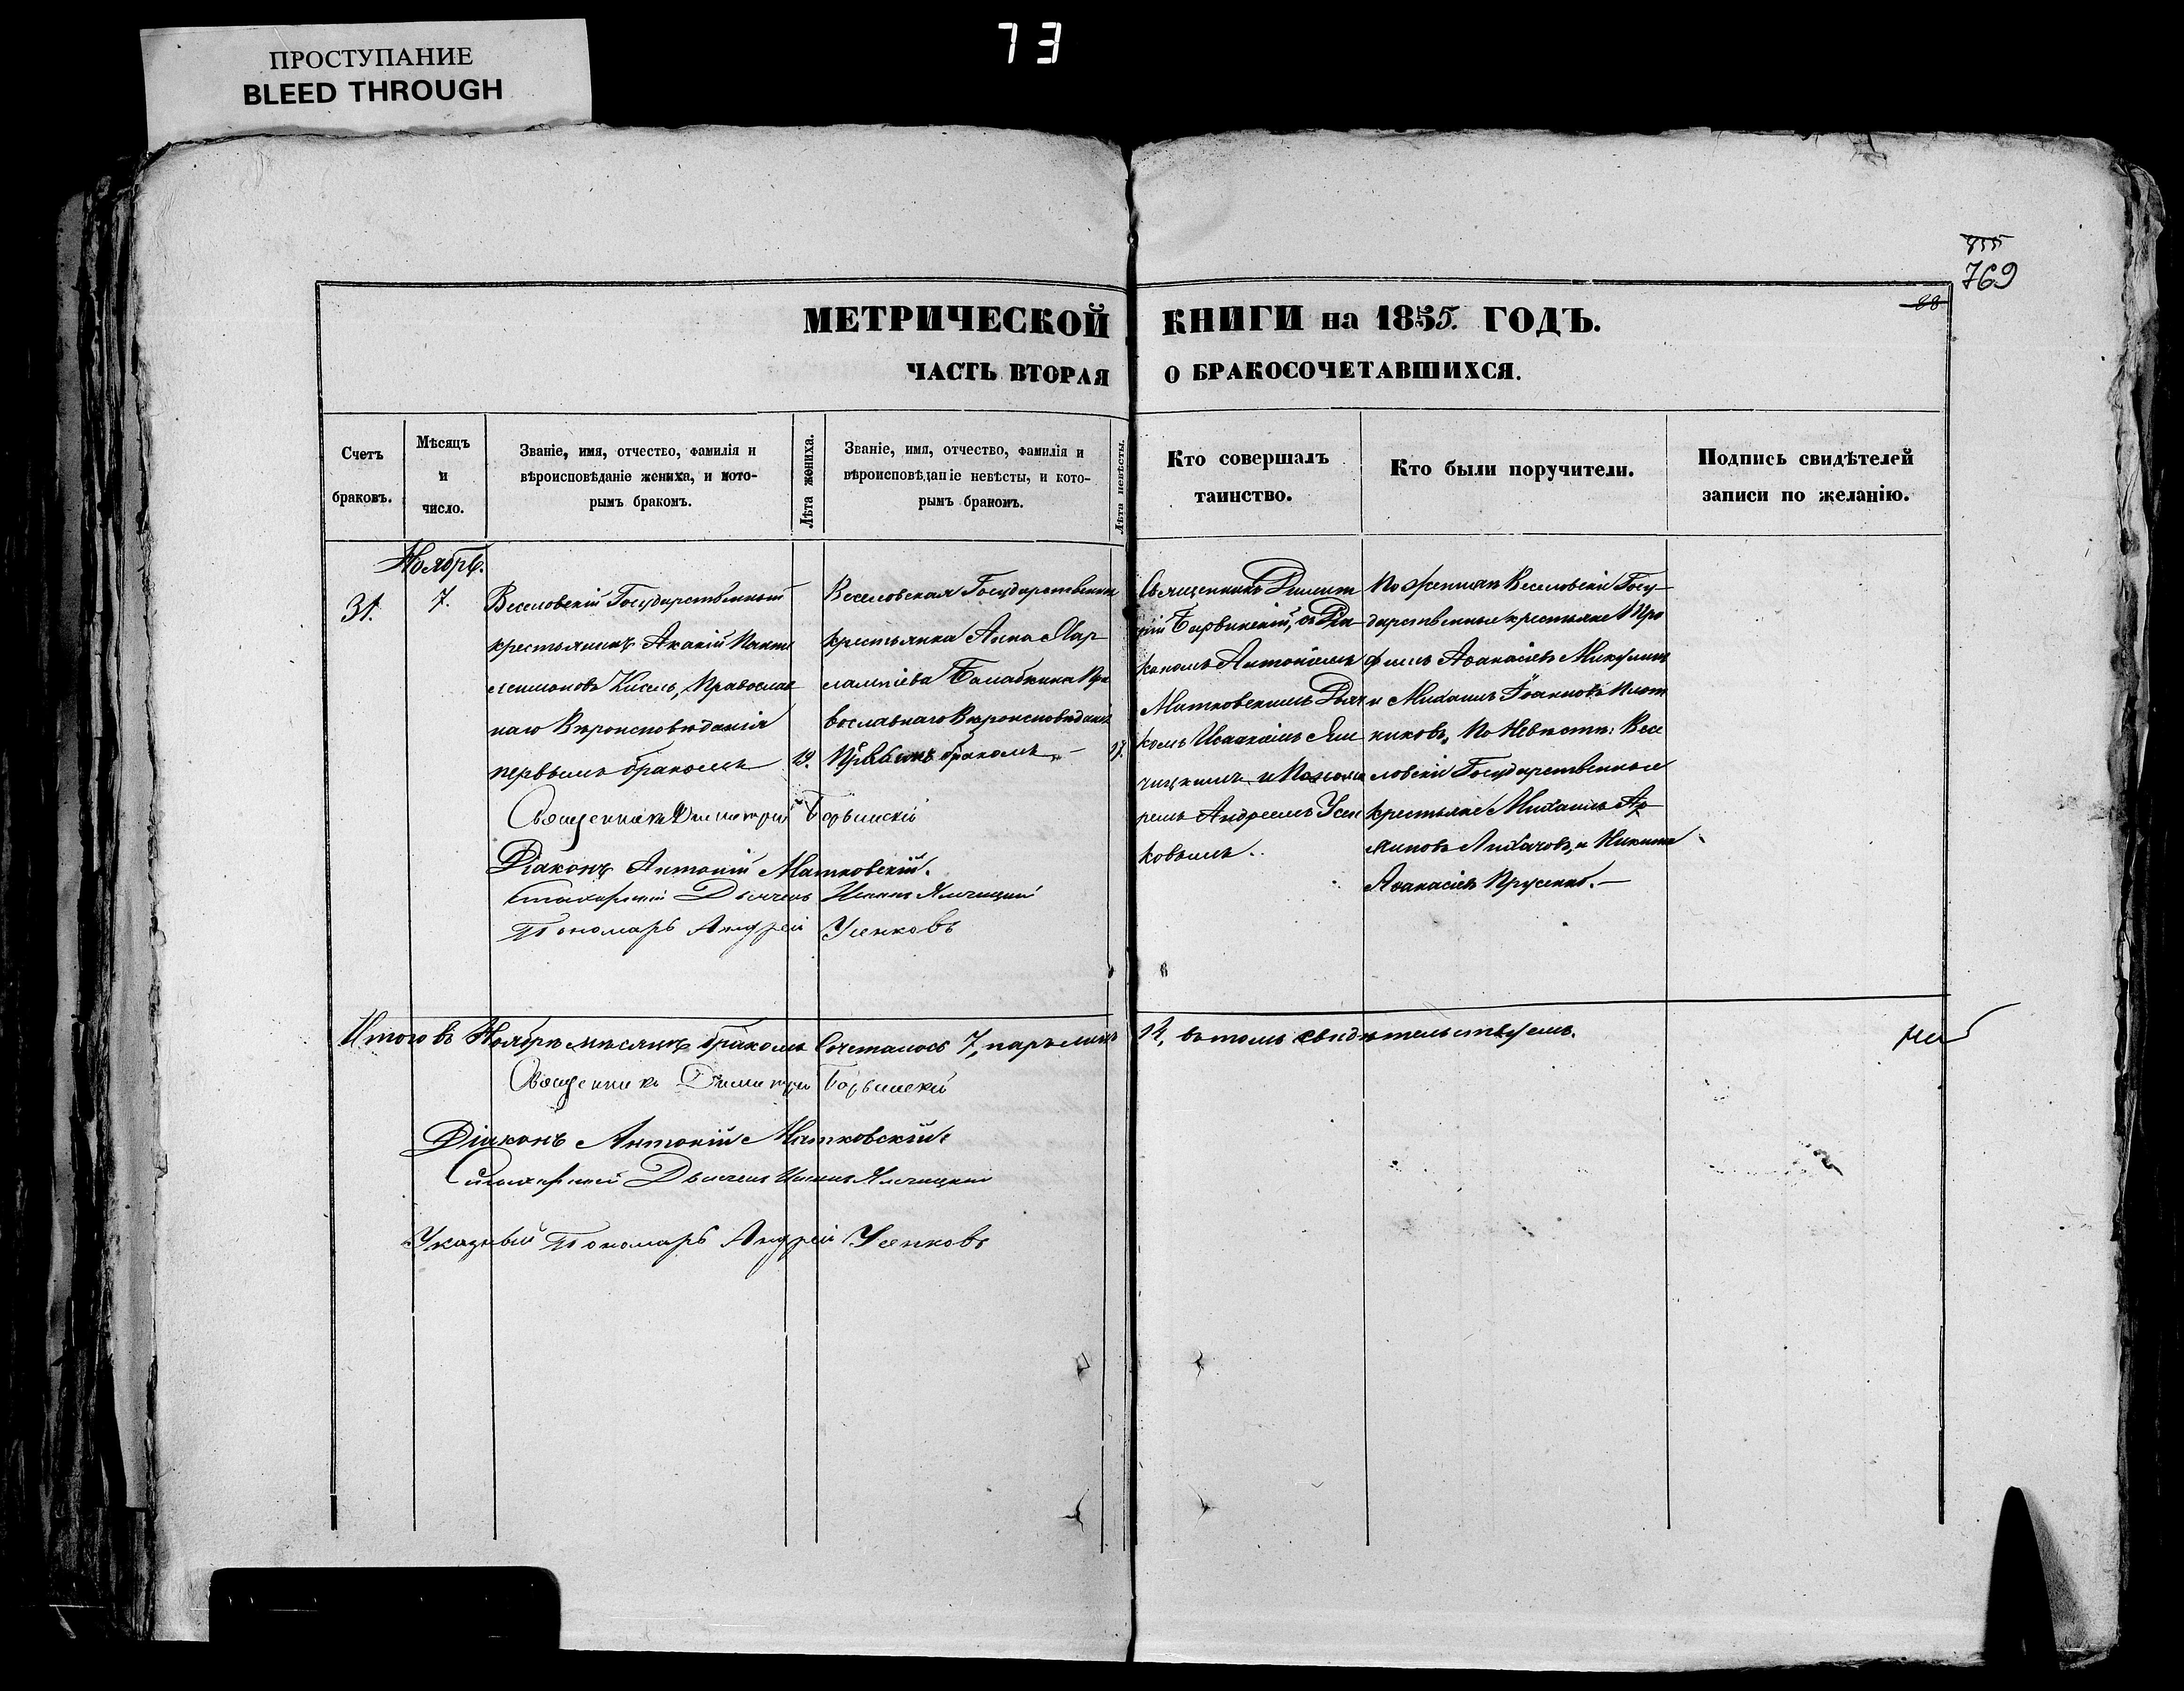 ПРОСТУПАНИЕ
BLEED THROUGH
73
855
769
88
МЕТРИЧЕСКОЙ КНИГИ на 1855. ГОДЪ.
ЧАСТЬ ВТОРАЯ О БРАКОСОЧЕТАВШИХСЯ.
Счетъ
браковъ.
Мѣсяцъ
и
число.
Званіе, имя, отчество, фамилія и
вѣроисповѣданіе жениха, и кото-
рымъ бракомъ.
Лѣта жениха.
Званіе, имя, отчество, фамилія и
вѣроисповѣданіе невѣсты, и кото-
рымъ бракомъ.
Лѣта невѣсты.
Кто совершалъ
таинство.
Кто были поручители.
Подпись свидѣтелей
записи по желанію.
Ноябрь.
31.
7.
Веселовскій Государственный
крестьянинъ Акакій Пантe
леимоновъ Кисель, Православ
наго Вѣроисповѣданія
первымъ бракомъ
19.
Веселовская Государственная
крестьянка Анна Хар
лампіева Балабкина Пра
вославнаго Вѣроисповѣданія
Первымъ бракомъ
17.
Священникъ Димит
рій Борвинскій, съ Діа
кономъ Антоніемъ
Матковскимъ Дьяч
комъ Исаакіемъ Ям
чицкимъ и Понома
ремъ Андреемъ Усен
ковымъ.
По женихѣ Веселовскіе Госу-
дарственные крестьяне Тро
фимъ Аѳанасіевъ Микулинъ
и Михаилъ Іоанновъ Плот
никовъ, По Невѣстѣ: Весе
ловскіе Государственные
крестьяне Михаилъ
Лихачовъ, и Никита
Аѳанасіевъ Прусенко.
Священникъ Димитрій Борвинскій
Діаконъ Антоній Матковскій.
Дьячекъ Ямчицкій
Пономарь Андрей Усенковъ
Итого въ Ноябрѣ мѣсяцѣ бракомъ Сочеталось 7, паръ лицъ 14, въ томъ свидѣтельствуемъ.
Священникъ Димитрій Борвинскій
Діаконъ Антоній Матковскій
Дьячекъ Ямчицкій
Указный Пономарь Андрей Усенковъ